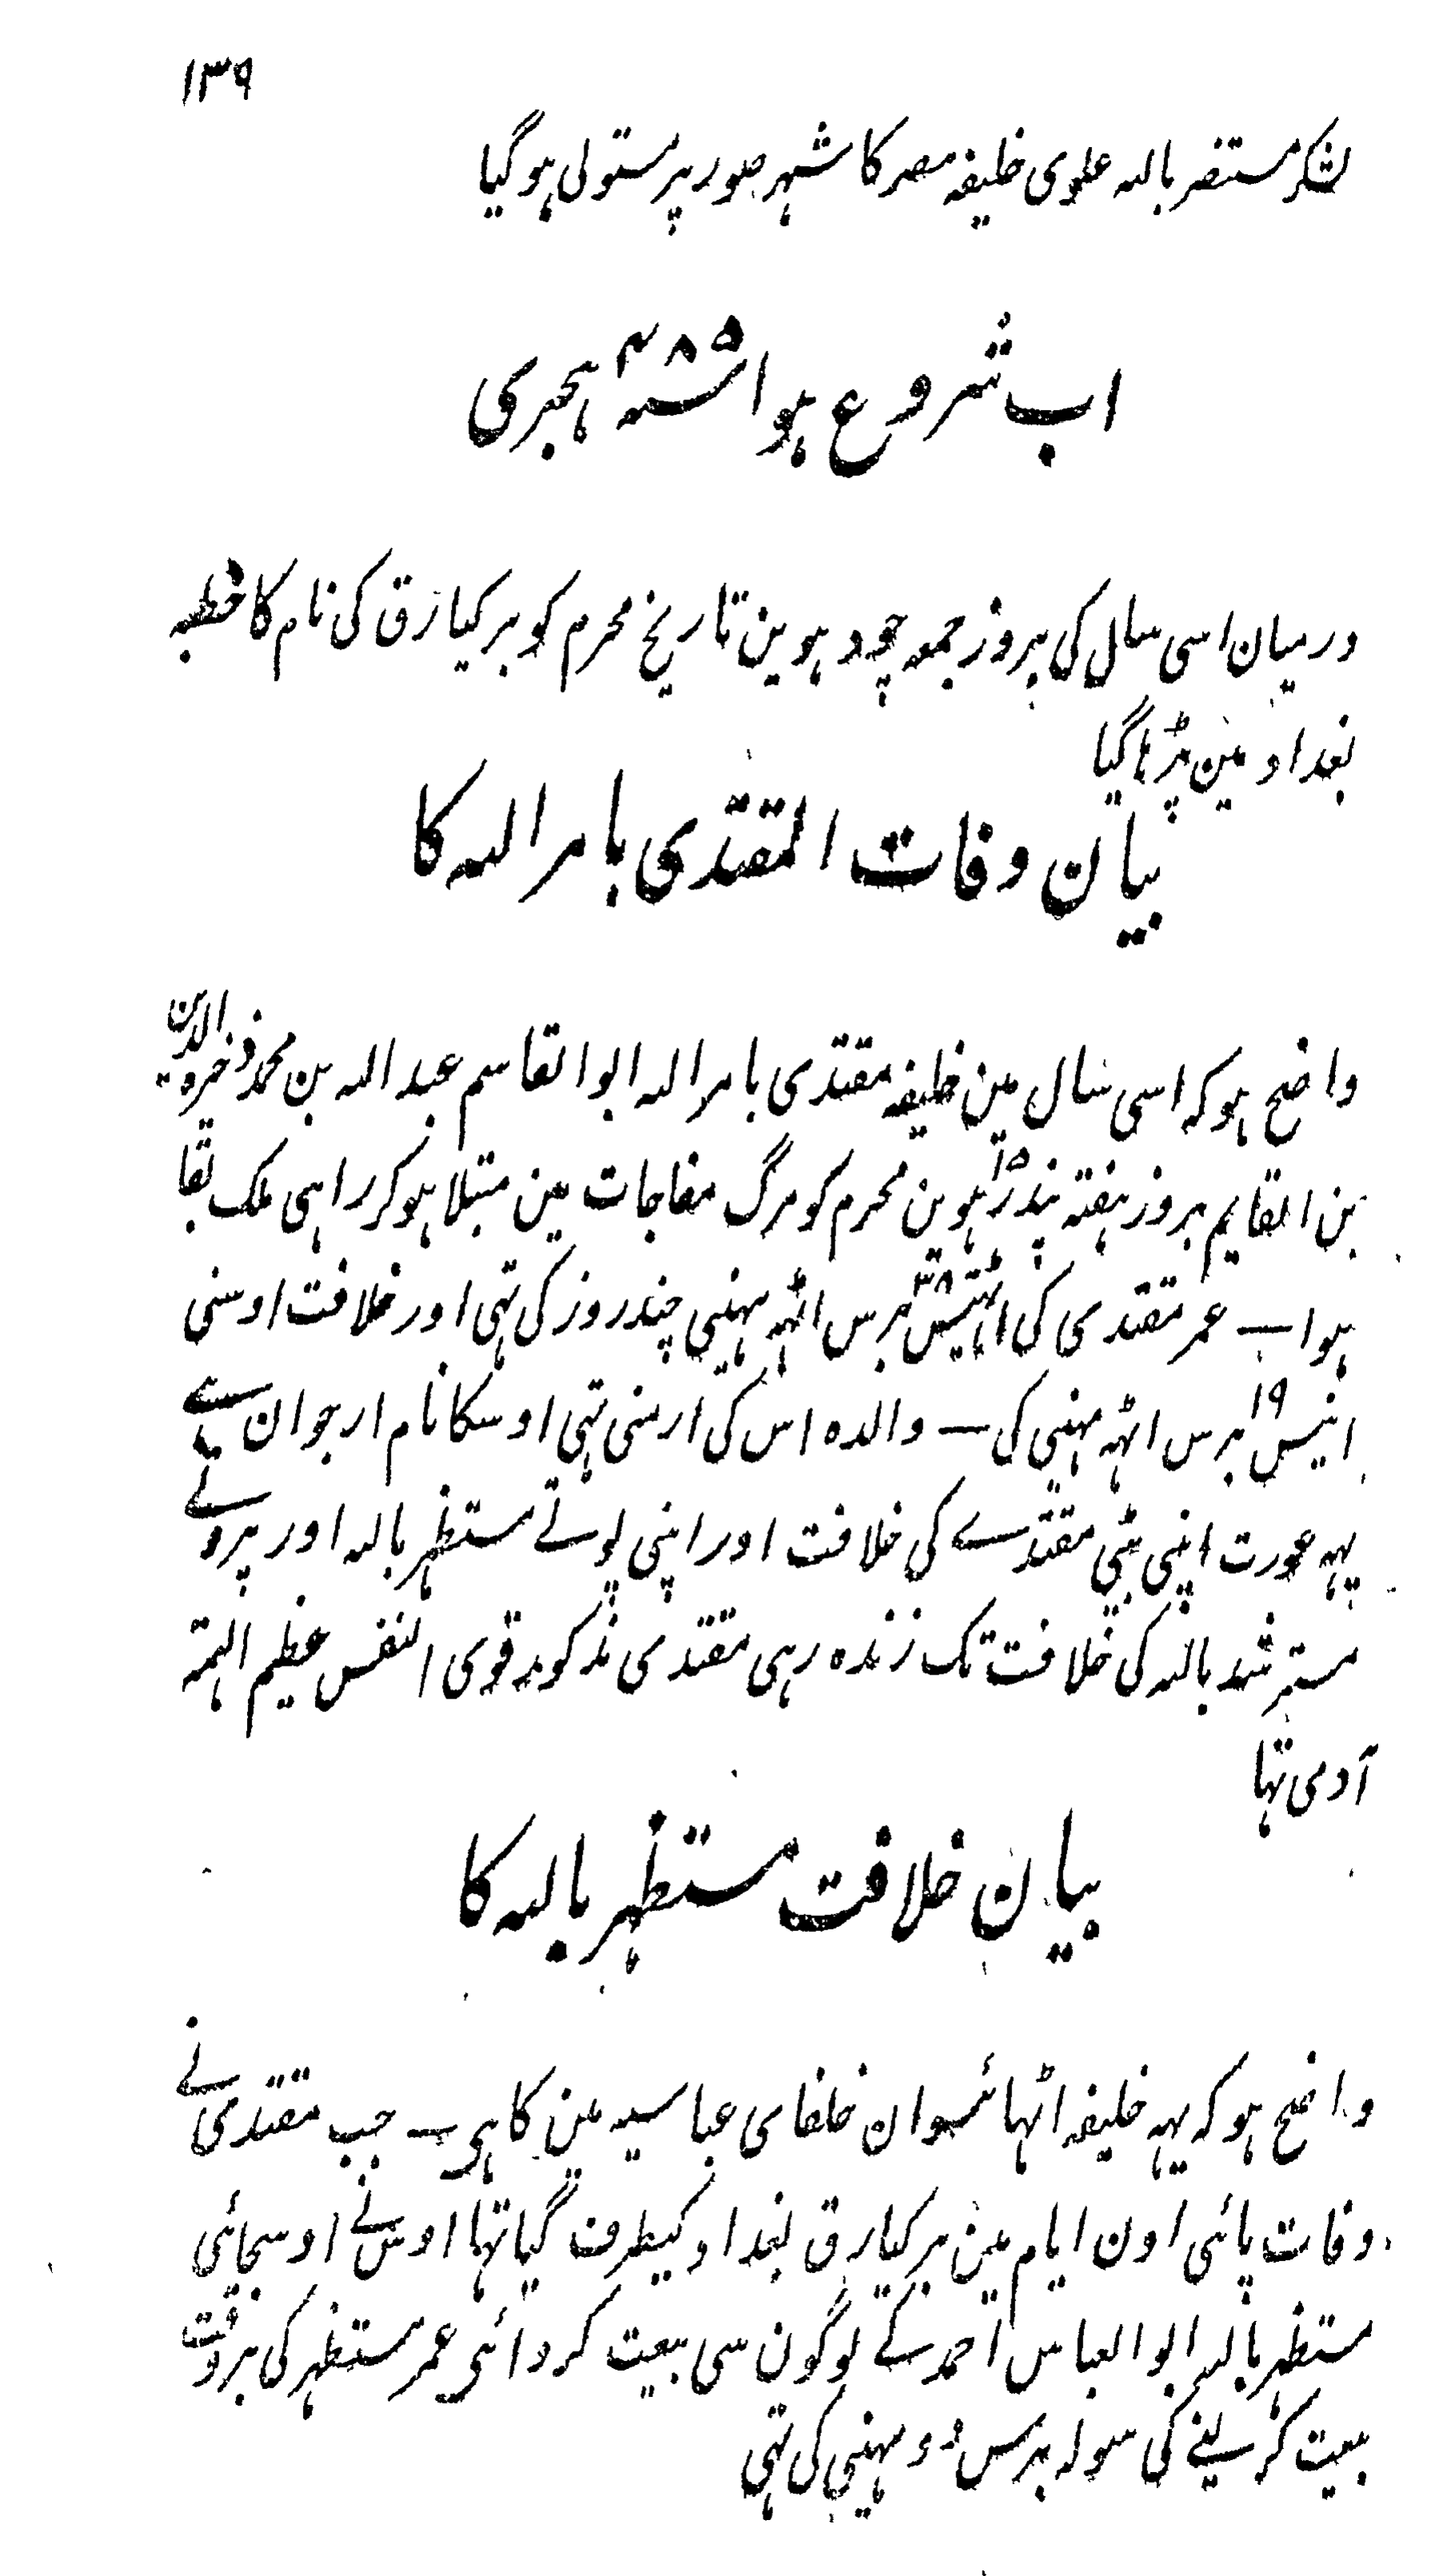 ۱۳۹
لشکر مستنصر بالله علوی خلیفہ مصر کا شہر صور پر مستولی ہو گیا
اب شروع ہوا سنہ ۴۸۵ ہجری
درمیان اسی سال کی بروز جمعہ چودہوین تاریخ محرم کو برکیارق کی نام کا خطبہ
بغداد مین پڑہا گیا
بیان وفات المقتدی بامر الله کا
واضح ہو کہ اسی سال مین خلیفہ مقتدی بامر الله ابو القاسم عبد الله بن محمد ذخیرہ الدین
بن القایم بروز ہفتہ پندرہوین ۱۵ محرم کو مرگ مفاجات مین مبتلا ہو کر راہی ملک بقا
ہوا ـــ عمر مقتدی کی اٹہتیس ۳۸ برس اٹہہ مہینی چند روز کی تہی اور خلافت اوسنی
انیس ۱۹ برس اٹہہ مہینی کی ـــ والدہ اس کی ارمنی تہی اوسکا نام ارجوان ہے
یہہ عورت اپنی بیٹی مقتدے کی خلافت اور اپنی پوتے مستظہر بالله اور پروتے
مسترشد بالله کی خلافت تک زندہ رہی مقتدی مذکور قوی النفس عظیم الہمۃ
آدمی تہا
بیان خلافت مستظہر بالله کا
واضح ہو کہ یہہ خلیفہ اٹہائسوان خلفای عباسیہ مین کا ہی ـــ جب مقتدی نے
وفات پائی اون ایام مین برکیارق بغداد کیطرف گیا تہا اوس نے اوسجائی
مستظہر بالله ابو العباس احمد کے لوگون سی بیعت کروائی عمر مستظہر کی بروقت
بیعت کر لینے کی سولہ برس دو مہینی کی تہی